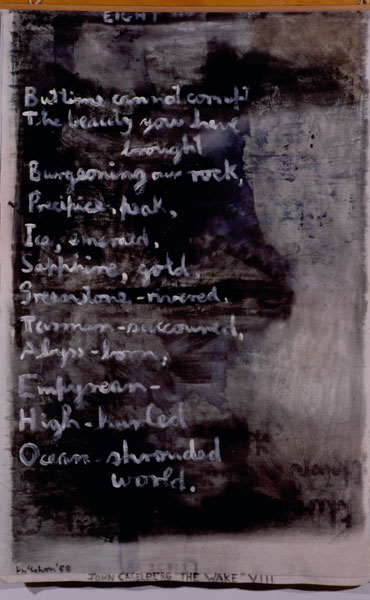 EIGHT
But time cannot corrupt
The beauty you have
brought
Burgeoning our rock,
Precipice, peak,
Ice, emerald,
Sapphire, gold,
Greenstone-rivered,
Tasman-succoured,
Abyss-born,
Empyrean-
High-hurled
Ocean-shrouded
world.
McCahon '58
JOHN CASELBERG "THE WAKE" VIII